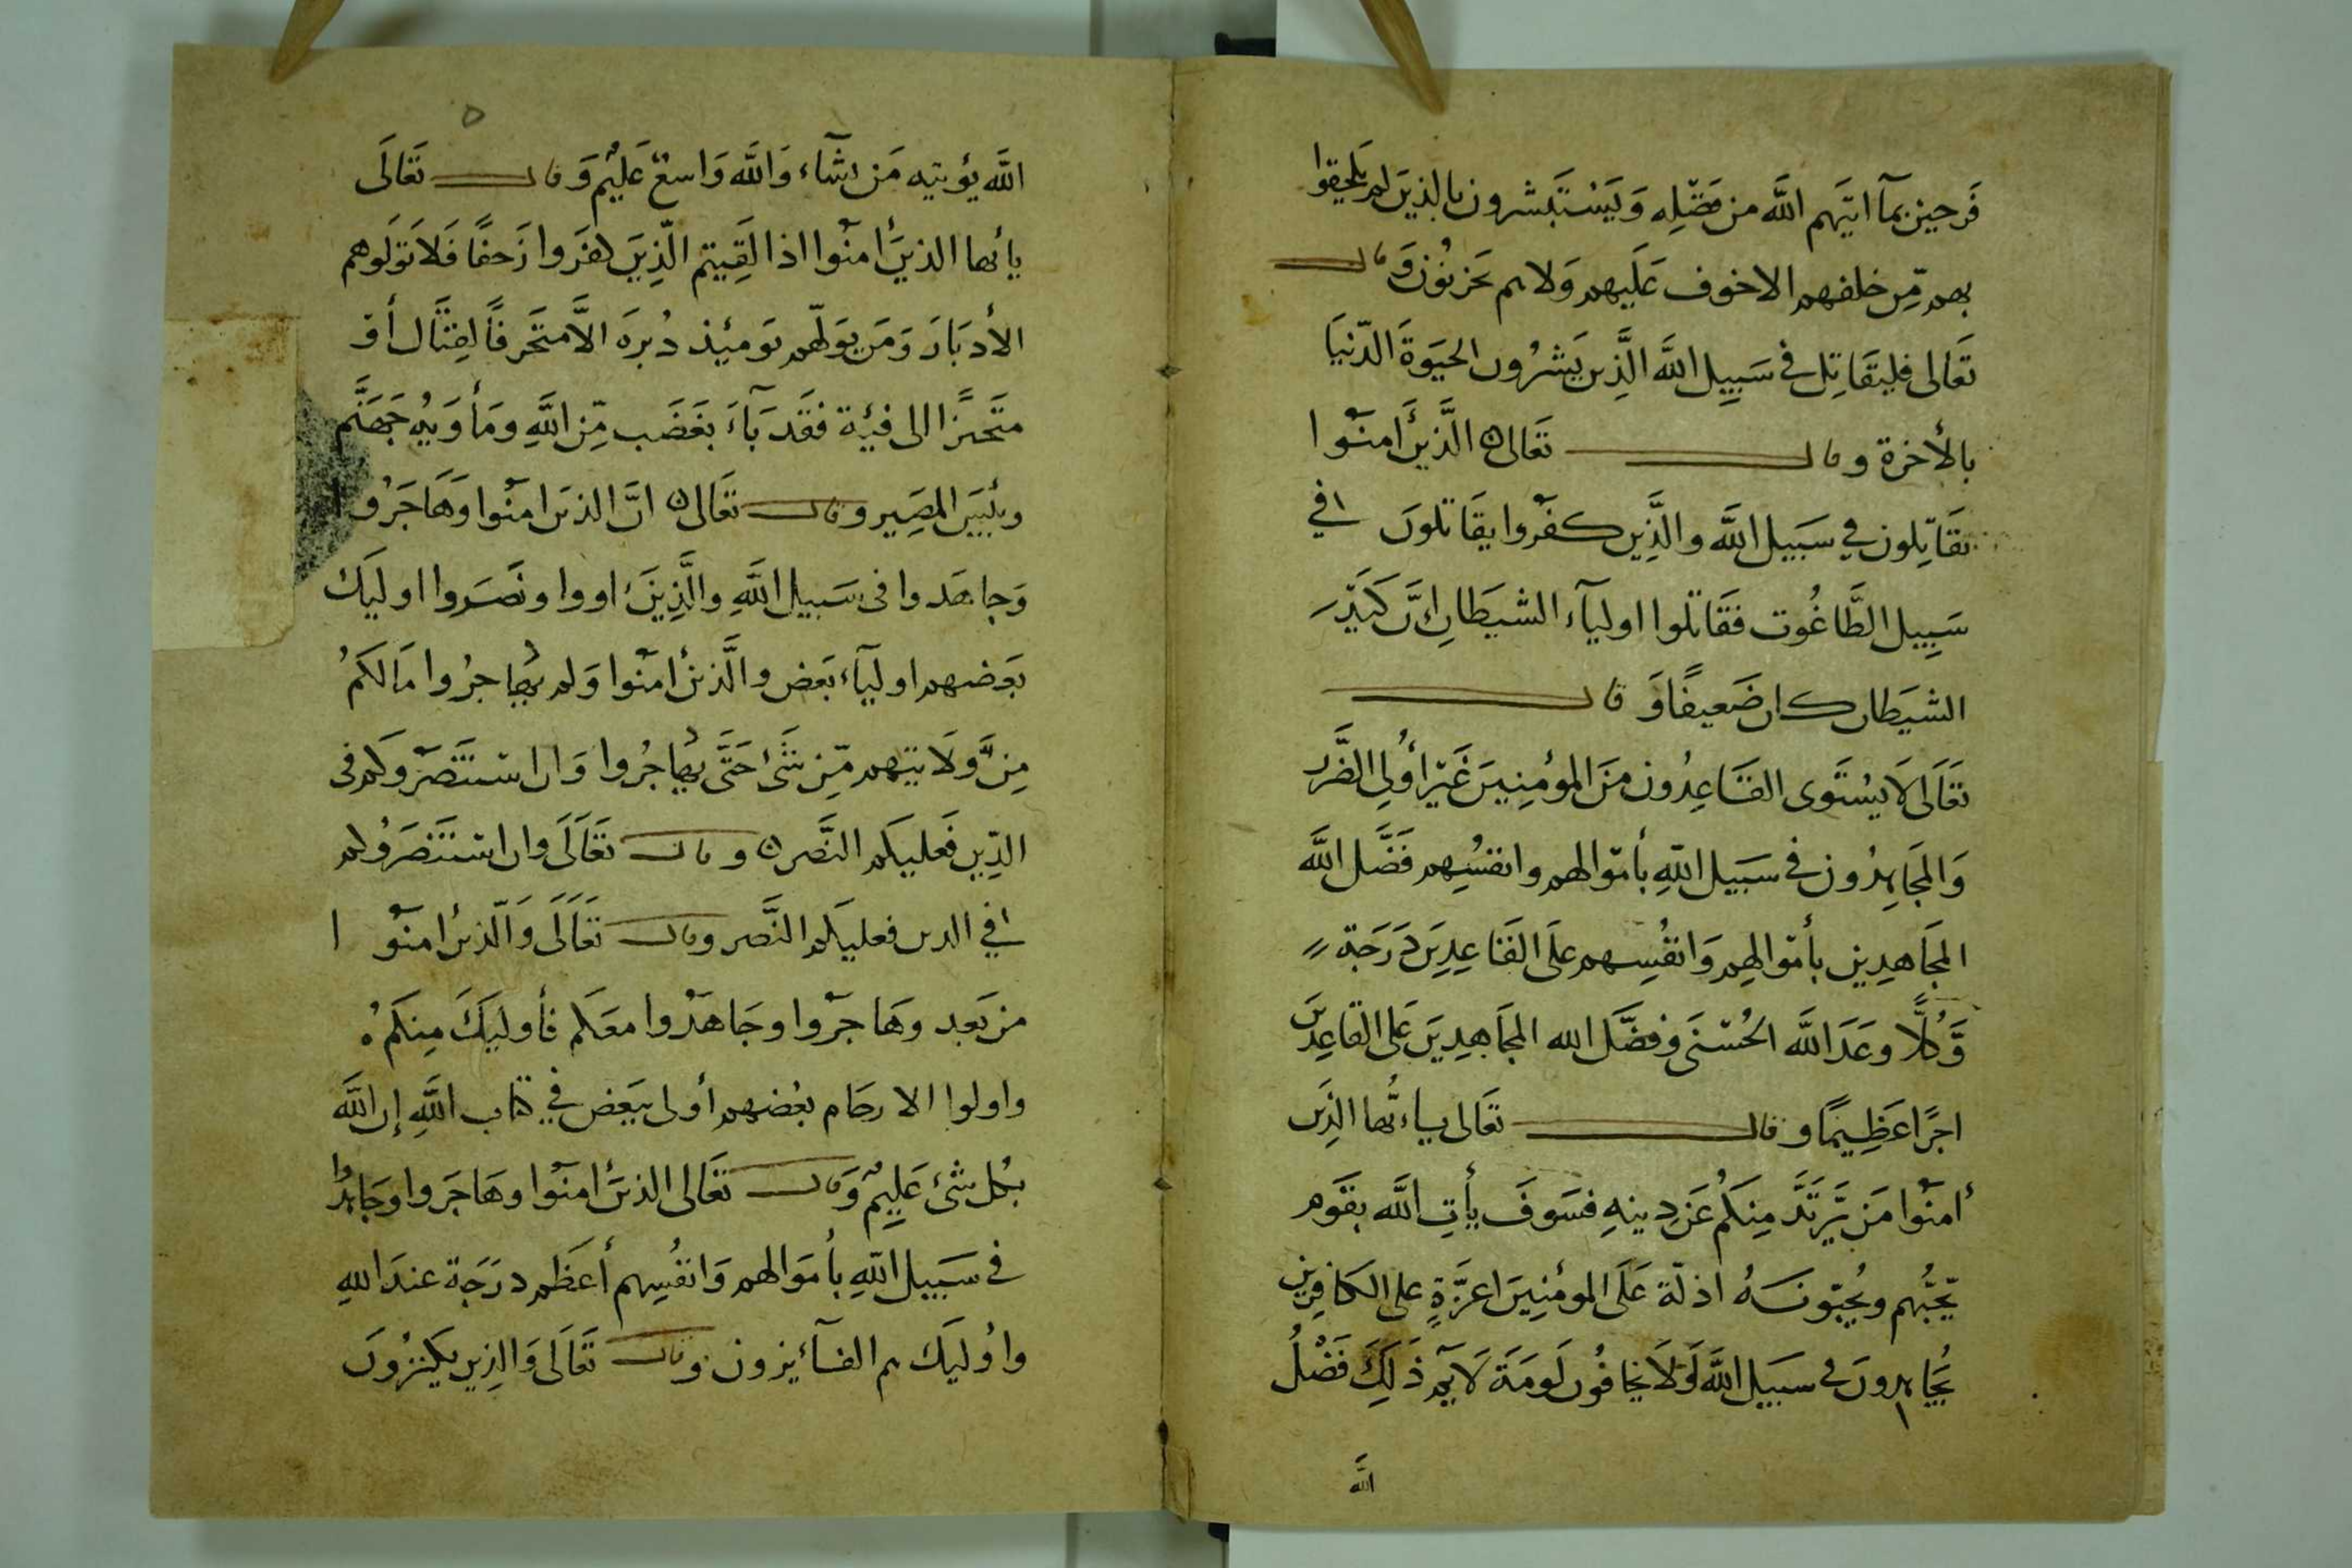 فَرحين بمآ اتيٰهم الله من فَضّلِه وَيَسْتَبشرون بالذين لم يَلحقوا
بهم مّن خلفهم الاخوف عَلَيهم وَلاهم يَحزنُونَ وَقال
تعَالى فليقَاتِل في سَبِيل الله الَّذين يَشرُون الحيَوةَ الدّنيَا
بالأخرة وقال تعَالى الَّذينَ أمنُوا
يقَاتِلون في سَبيل الله والَّذِين كفَروا يقَاتلونَ في
سَبِيل الطَّاغُوت فقَاتلوا اوليآء الشيطَان إنَّ كَيْدَ
الشيطَان كان ضَعيفًا وَقال
تعَالَى لَا يَسْتَوى القَاعِدُون منَ المؤمِنِينَ غَيْر أُولِى الضَّرر
وَالمجَاهِدُون في سَبيل اللهِ بأموالهم وانفسُهِم فَضَّل الله
المجَاهدِين بأموالهِم وَانفُسِهم علَى القَاعِدِينَ دَرَجَة
وَّكُلًّا وعَدَ الله الحُسْنَى وَفضَّل الله المجَاهِدِينَ عَلى القاعِدينَ
اجرًا عَظِيمًا وقال تعَالى يـاءيُّها الذِين
أمنُوا مَن يَّرتَدَّ مِنكُم عَن دِينهِ فسَوفَ يأتِ الله بقَوم
يّحبُّهم ويُحبّونَهُ اذلّة عَلَى المؤمنِينَ اعزَّةٍ على الكافِرين
يُجَاهِدونَ في سَبيل الله وَلَا يخافُون لَومَة لَايم ذَلِكَ فَضْلُ
الله
٥
الله يؤتيه مَن يشآء وَالله وَاسعٌ عَليْم وَقال تعَالَى
يا أيها الذينَ أمنُوا اذا لَقِيتم الّذِينَ كفَروا زَحفًا فَلَا تَوَلوهم
الأدبَارَ وَمَن يوَلّهم يَومَئِذ دُبرَه الَّا متَحَرفًا لقِتَال أو
متَحَيزًا الى فئِة فقَد بَآءَ بغَضَب مِّن اللهِ ومَأوَيهُ جَهَنَّم
وبئسَ المصِير وقال تعَالى انَّ الذينَ امنُوا وَهَاجَرُوا
وَجاهَدوا فى سَبيل اللهِ والَّذِينَ اووا ونَصَروا اوليَك
بعَضهم اوليآء بَعض والَّذينَ أمنُوا وَلم يُهاجرُوا مَالكَمُ
مِنْ وَّلَايتهِم مّن شَئ حَتَّى يُهاجُروا وَان استَنصَروكم فى
الدِّين فَعليكَم النَّصر وقال تعَالَى وان استَنصَرُوكم
في الدين فعليكَم النَّصر وقال تعَالَى وَالّذينَ امنُوا
من بَعد وهَاجَروا وجَاهدُوا معَكم فأوليَكَ مِنكَمُ
واولوا الارحَام بعُضهم أولى ببَعَض في كتاب اللهِ إن الله
بكُل شئ عَلِيمٌ وَقال تعَالى الذينَ امنُوا وهَاجَروا وجَاهدُوا
في سَبيل اللهِ بأموَالهم وَانفُسِهم أعَظم درَجَة عندَ اللهِ
واوُليَك هم الفآئزون وقال تعَالَى وَالذِين يكنزُونَ